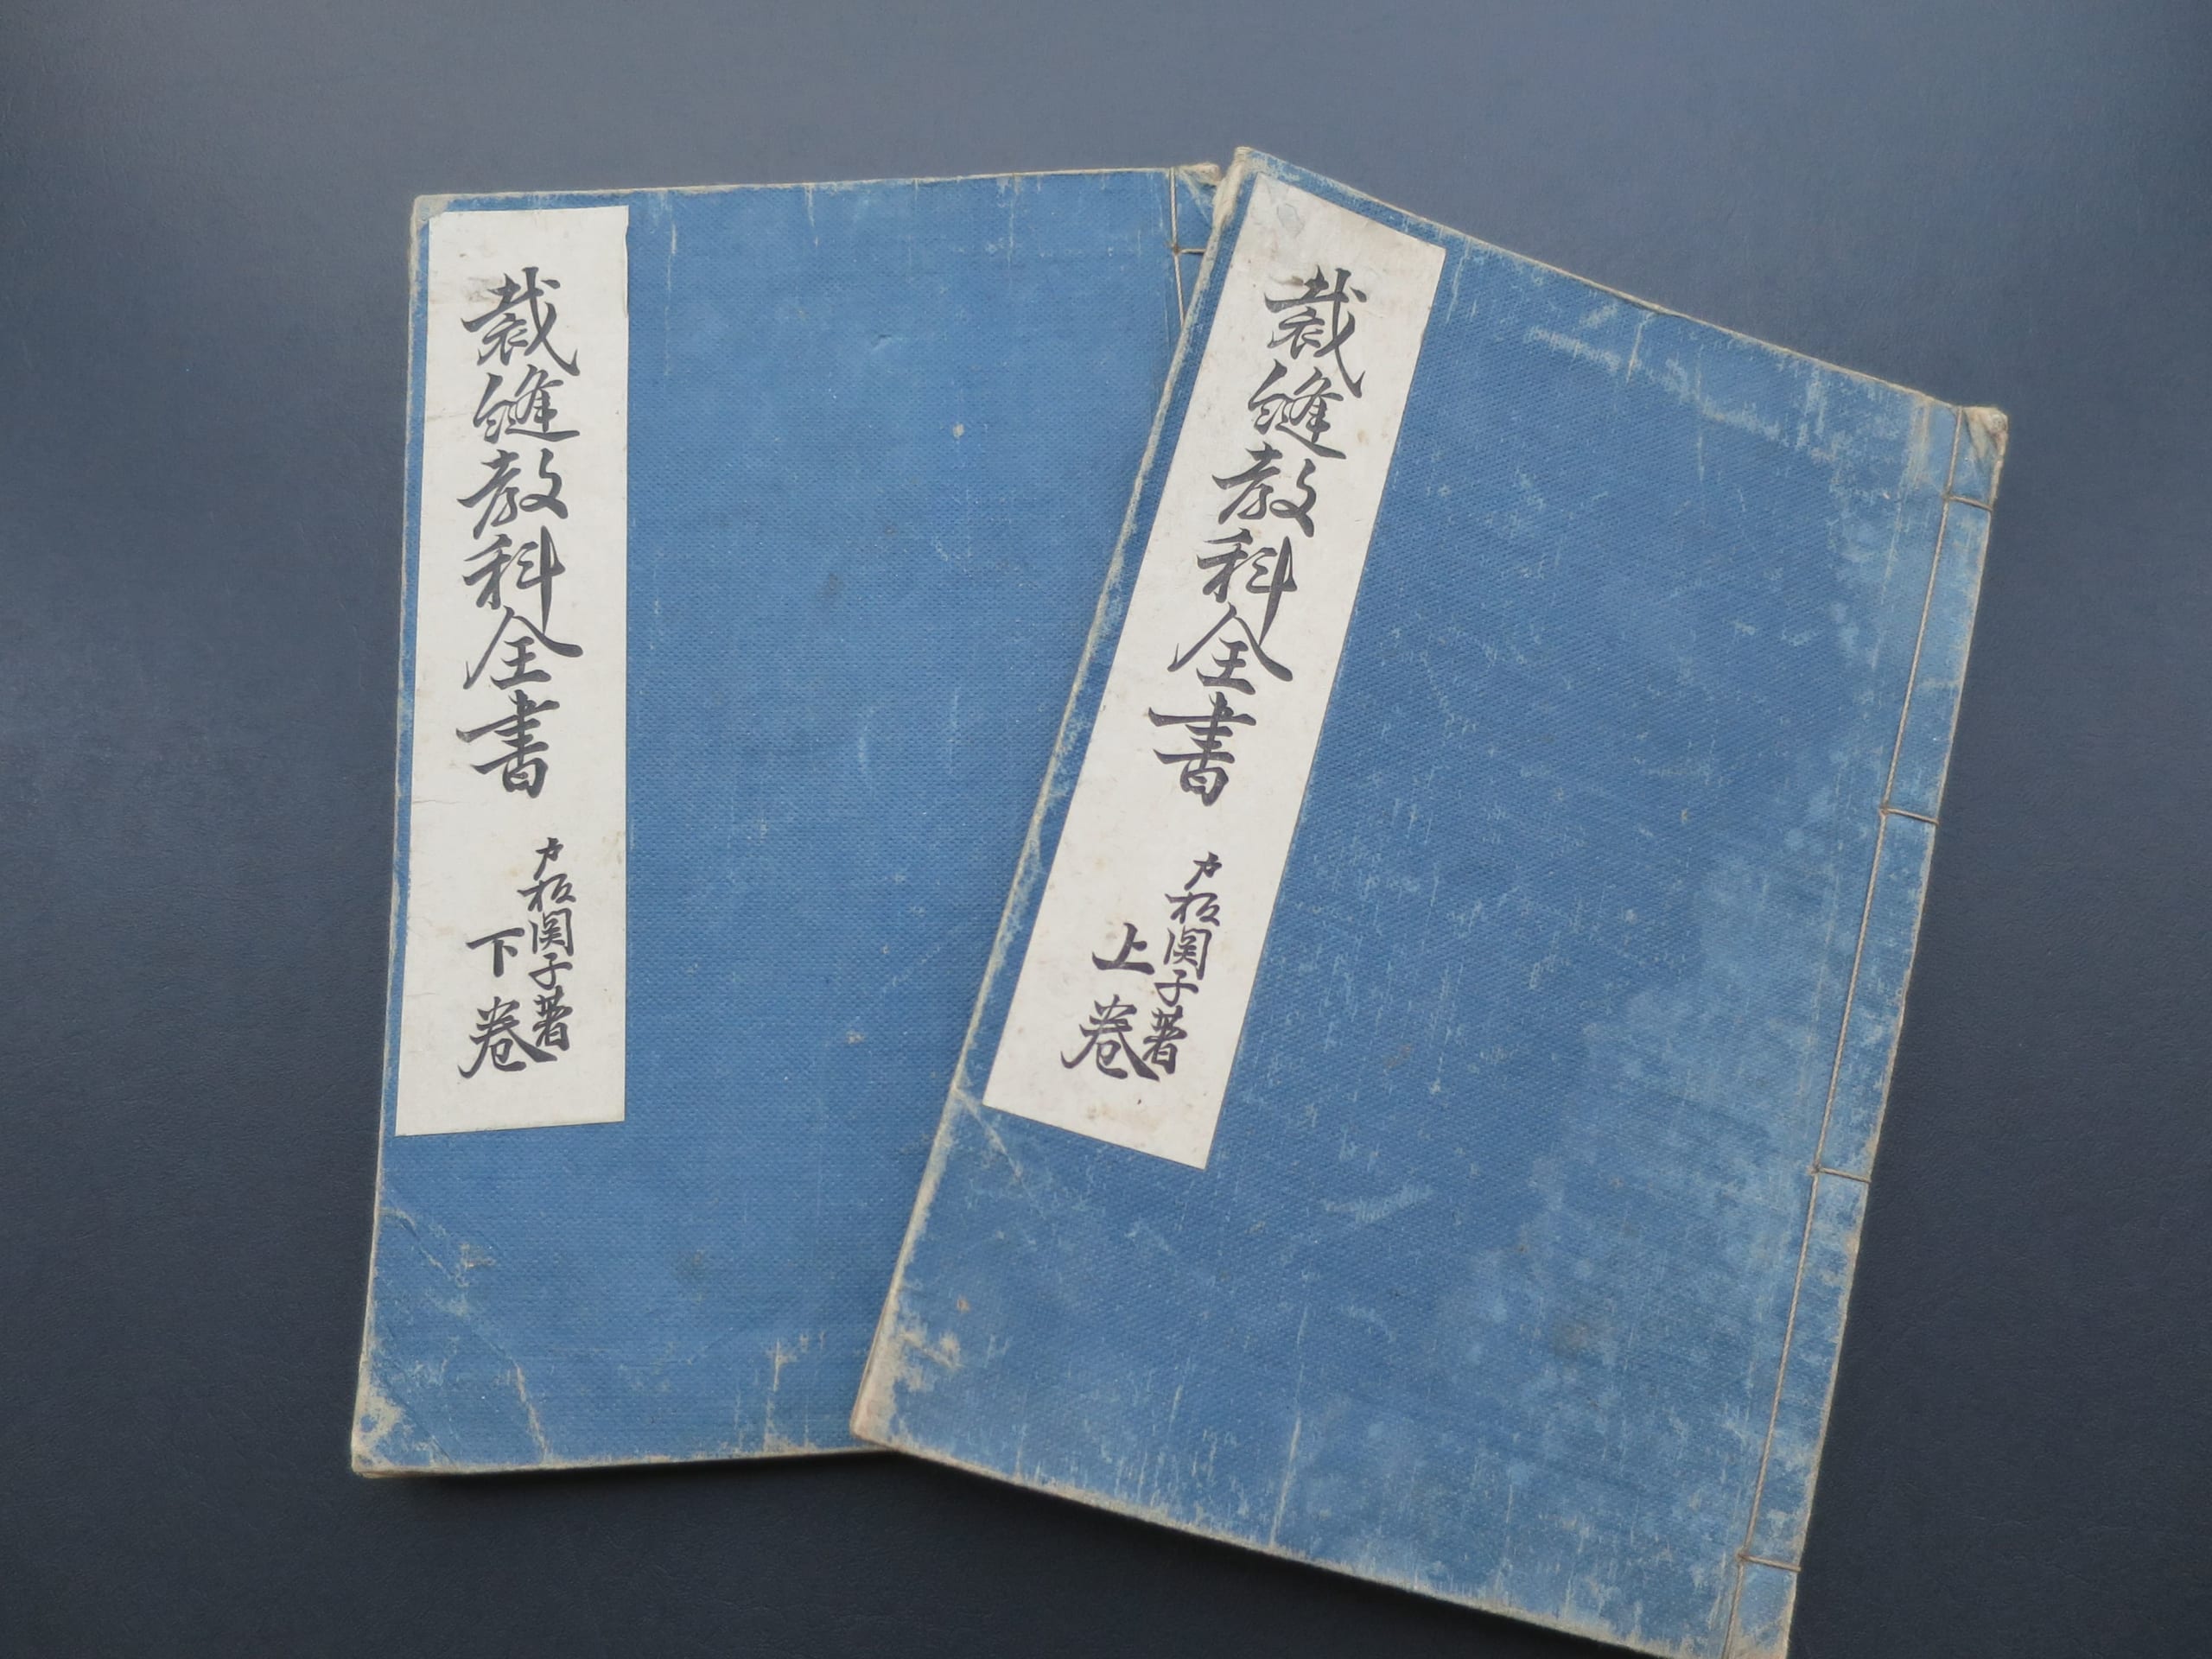 裁縫教科全書
戸板関子著
上巻
裁縫教科全書
戸板関子著
下巻